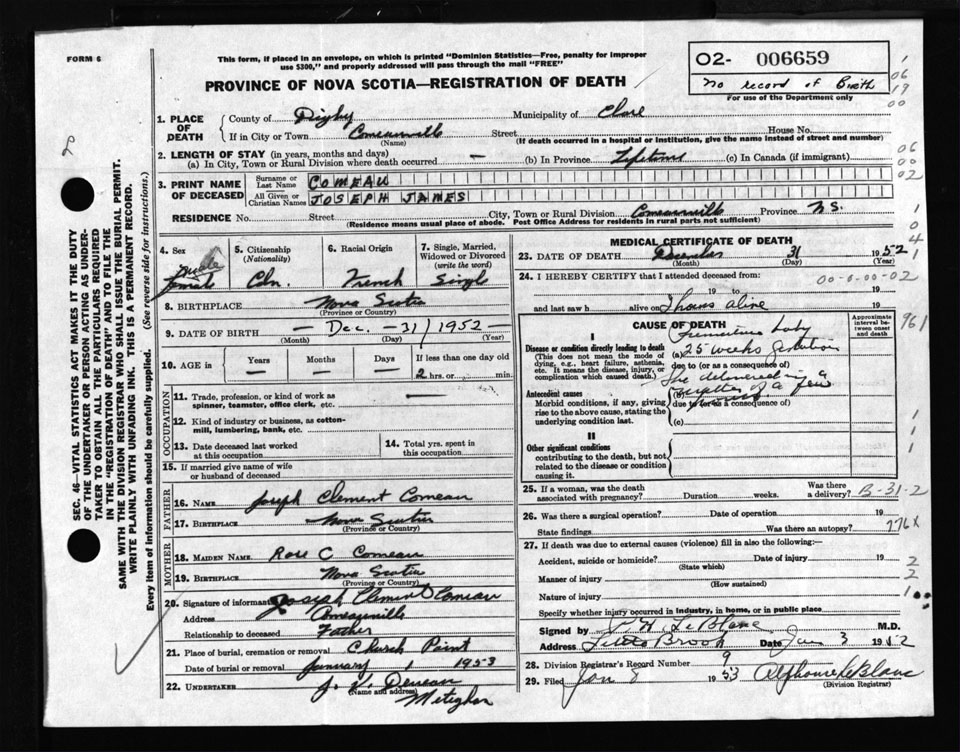 FORM 6
This form, if placed in an envelope, on which is printed "Dominion Statistics—Free, penalty for improper
use $300," and properly addressed will pass through the mail "FREE"
PROVINCE OF NOVA SCOTIA—REGISTRATION OF DEATH
O2- 006659
No record of Birth
For use of the Department only
1. PLACE OF DEATH County of Digby Municipality of Clare
If in City or Town Comeauville Street House No.
(Name) (If death occurred in a hospital or institution, give the name instead of street and number)
2. LENGTH OF STAY (in years, months and days)
(a) In City, Town or Rural Division where death occurred — (b) In Province Lifetime (c) In Canada (if immigrant)
3. PRINT NAME OF DECEASED Surname or Last Name COMEAU
All Given or Christian Names JOSEPH JAMES
RESIDENCE No. Street City, Town or Rural Division Comeauville Province N.S.
(Residence means usual place of abode. Post Office Address for residents in rural parts not sufficient)
4. Sex Male
5. Citizenship (Nationality) Cdn.
6. Racial Origin French
7. Single, Married, Widowed or Divorced (write the word) Single
8. BIRTHPLACE Nova Scotia
(Province or Country)
9. DATE OF BIRTH — Dec. — 31 / 1952 —
(Month) (Day) (Year)
10. AGE in Years Months Days If less than one day old
— — — 2 hrs. or min.
OCCUPATION
11. Trade, profession or kind of work as spinner, teamster, office clerk, etc. —
12. Kind of industry or business, as cotton-mill, lumbering, bank, etc.
13. Date deceased last worked at this occupation
14. Total yrs. spent in this occupation
15. If married give name of wife or husband of deceased
FATHER
16. NAME Joseph Clement Comeau
17. BIRTHPLACE Nova Scotia
(Province or Country)
MOTHER
18. MAIDEN NAME Rose C Comeau
19. BIRTHPLACE Nova Scotia
(Province or Country)
20. Signature of informant Joseph Clement Comeau
Address Comeauville
Relationship to deceased Father
21. Place of burial, cremation or removal Church Point
Date of burial or removal January 1 1953
22. UNDERTAKER
(Name and address)
Meteghan
MEDICAL CERTIFICATE OF DEATH
23. DATE OF DEATH December 31 1952
(Month) (Day) (Year)
24. I HEREBY CERTIFY that I attended deceased from:
19 to 19
00-0-00-02
and last saw h alive on 2 hours alive
CAUSE OF DEATH
Approximate interval between onset and death
I
Disease or condition directly leading to death
(This does not mean the mode of dying, e.g., heart failure, asthenia, etc. It means the disease, injury, or complication which caused death.)
(a) Premature baby
25 weeks gestation
due to (or as a consequence of)
Antecedent causes
Morbid conditions, if any, giving rise to the above cause, stating the underlying condition last.
(b) She delivered in a
matter of a few
due to (or as a consequence of)
(c)
II
Other significant conditions
contributing to the death, but not related to the disease or condition causing it.
961
25. If a woman, was the death associated with pregnancy? Duration weeks. Was there a delivery? B-31-2
26. Was there a surgical operation? Date of operation 19
State findings Was there an autopsy? 776x
27. If death was due to external causes (violence) fill in also the following:—
Accident, suicide or homicide? Date of injury 19
(State which)
Manner of injury
(How sustained)
Nature of injury
Specify whether injury occurred in industry, in home, or in public place
Signed by P. H. LeBlanc M.D.
Address Little Brook Date Jan 3 1952
28. Division Registrar's Record Number 9
29. Filed Jan 8 1953 Alphonse LeBlanc
(Division Registrar)
SEC. 46—VITAL STATISTICS ACT MAKES IT THE DUTY
OF THE UNDERTAKER OR PERSON ACTING AS UNDER-
TAKER TO OBTAIN ALL THE PARTICULARS REQUIRED
IN THE "REGISTRATION OF DEATH" AND TO FILE THE
SAME WITH THE DIVISION REGISTRAR WHO SHALL ISSUE THE BURIAL PERMIT.
WRITE PLAINLY WITH UNFADING INK. THIS IS A PERMANENT RECORD.
Every item of information should be carefully supplied. (See reverse side for instructions.)